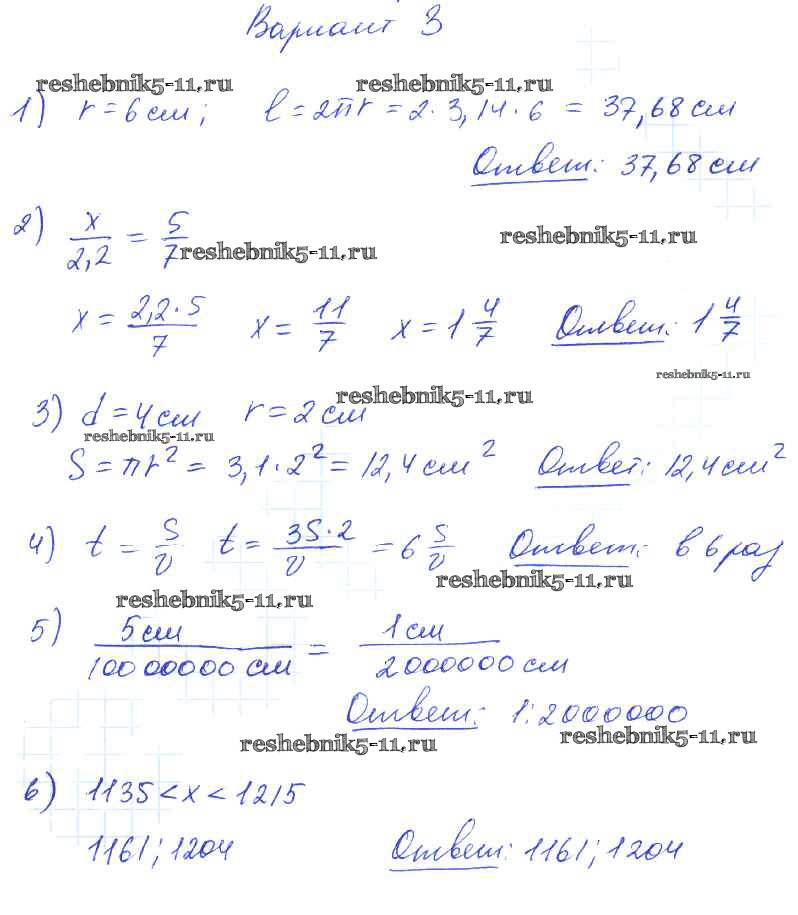 Вариант 3
reshebnik5-11.ru reshebnik5-11.ru
1) r = 6 см; l = 2πr = 2·3,14·6 = 37,68 см
Ответ: 37,68 см
2) x/2,2 = 5/7
reshebnik5-11.ru reshebnik5-11.ru
x = 2,2·5/7 x = 11/7 x = 1 4/7 Ответ: 1 4/7
reshebnik5-11.ru
3) d = 4 см r = 2 см
reshebnik5-11.ru reshebnik5-11.ru
S = πr² = 3,1·2² = 12,4 см² Ответ: 12,4 см²
4) t = S/v t = 3S·2/v = 6 S/v Ответ: в 6 раз
reshebnik5-11.ru reshebnik5-11.ru
5) 5 см/10000000 см = 1 см/2000000 см
Ответ: 1:2000000
reshebnik5-11.ru reshebnik5-11.ru
6) 1135 < x < 1215
1161; 1204 Ответ: 1161; 1204